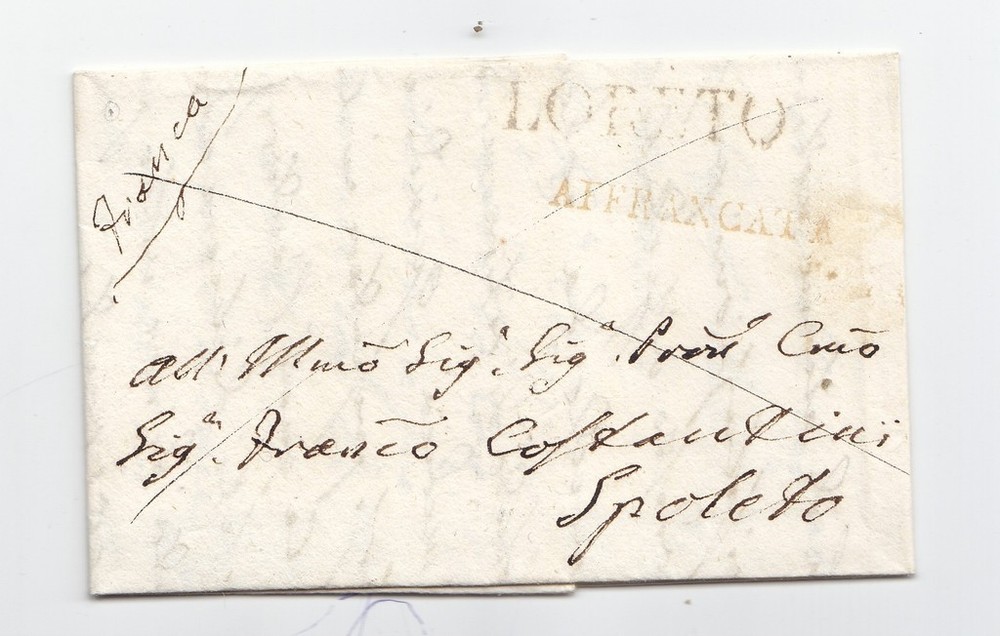 Franca
LORETO
AFFRANCATA
All' Illmõ Sig.ʳ Sig.ʳ Proñ Cmõ
Sig.ʳ Francõ Costantini
Spoleto